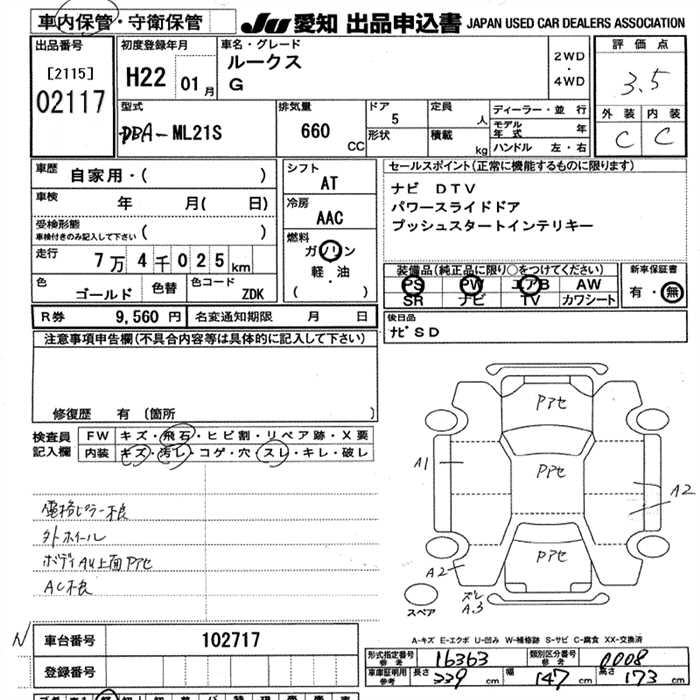 車内保管・守衛保管
JU 愛知 出品申込書 JAPAN USED CAR DEALERS ASSOCIATION
出品番号
[2115]
02117
初度登録年月
H22 01月
車名・グレード
ルークス
G
2WD
・
4WD
評価点
3.5
外装 内装
C C
型式
DBA-ML21S
排気量
660
CC
ドア
5
形状
定員
人
積載
kg
ディーラー・並行
モデル年式 年
ハンドル 左・右
車歴
自家用・( )
車検
年 月( 日)
受検形態
車検付きのみ記入して下さい ( )
走行
7万4千025km
色
ゴールド
色替
色コード
ZDK
シフト
AT
冷房
AAC
燃料
ガソリン
軽・油
( )
セールスポイント(正常に機能するものに限ります)
ナビ DTV
パワースライドドア
プッシュスタートインテリキー
装備品(純正品に限り○をつけてください)
PS PW エアB AW
SR ナビ TV カワシート
新車保証書
有・無
R券 9,560円 名変通知期限 月 日
後日品
ナビSD
注意事項申告欄(不具合内容等は具体的に記入して下さい)
修復歴 有 (箇所 )
検査員
記入欄
FW キズ・飛石・ヒビ割・リペア跡・X要
内装 キズ・汚レ・コゲ・穴・スレ・キレ・破レ
電格ミラー不良
外ホイール
ボディAU上面Pアセ
AC不良
Pアセ
Pアセ
Pアセ
A1
A2
A2
ズレ
A3
スペア
A-キズ E-エクボ U-凹み W-補修跡 S-サビ C-腐食 XX-交換済
N
車台番号 102717
登録番号
形式指定番号
参考
16363
類別区分番号
参考
0008
車庫証明用
参考
長さ 339 幅 147 高さ 173
cm cm cm